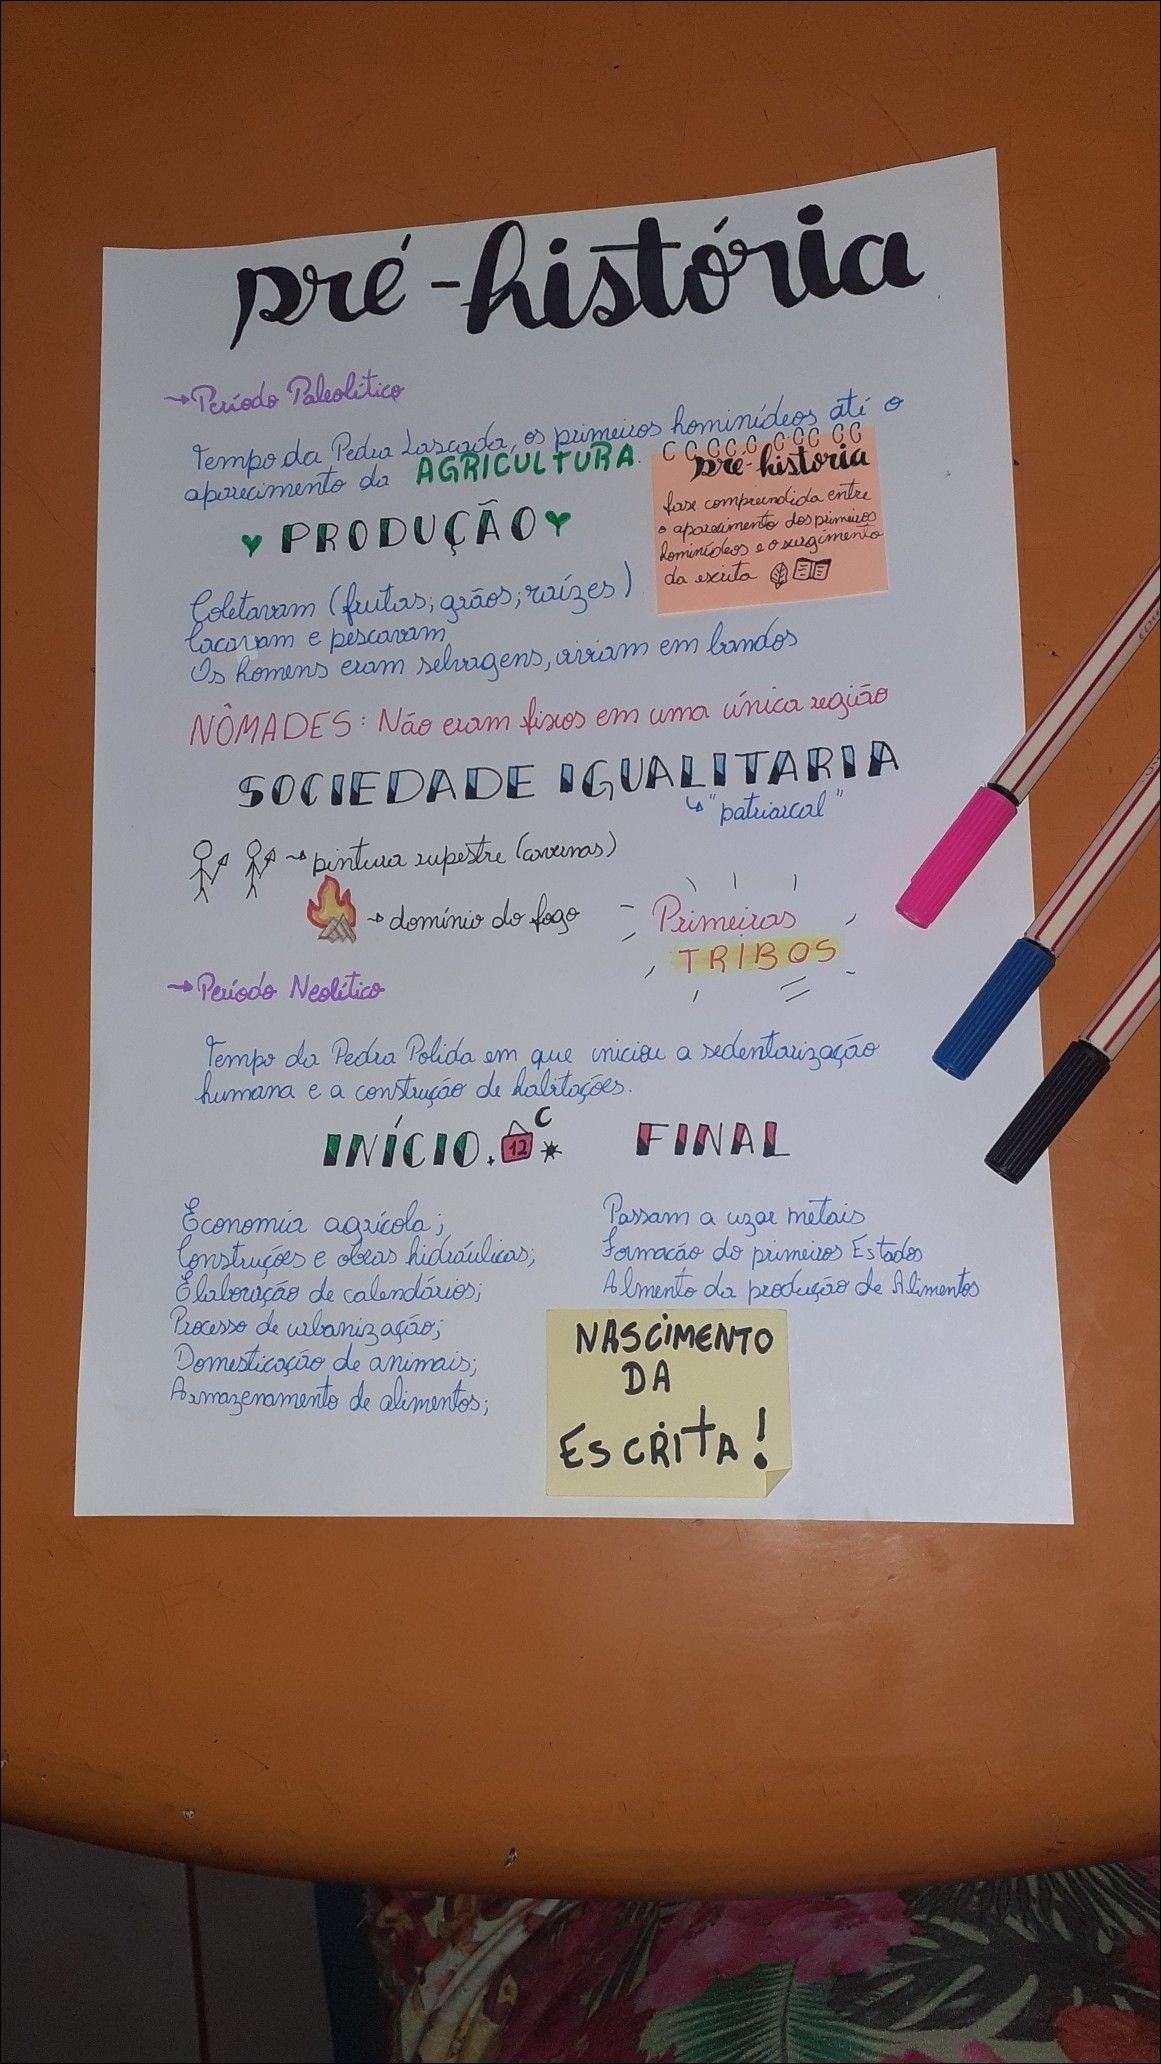 pré-história
→Período Paleolítico
Tempo da Pedra Lascada, os primeiros hominídeos até o
aparecimento da AGRICULTURA.
pré-história
fase compreendida entre
o aparecimento dos primeiros
hominídeos e o surgimento
da escrita
PRODUÇÃO
Coletavam (frutas; grãos; raízes)
Caçavam e pescavam
Os homens eram selvagens, viviam em bandos
NÔMADES: Não eram fixos em uma única região
SOCIEDADE IGUALITARIA
↳ "patriarcal"
→ pintura rupestre (cavernas)
→ domínio do fogo
Primeiras
TRIBOS
→Período Neolítico
Tempo da Pedra Polida em que iniciou a sedentarização
humana e a construção de habitações.
INÍCIO.
12
FINAL
Economia agrícola;
Construções e obras hidráulicas;
Elaboração de calendários;
Processo de urbanização;
Domesticação de animais;
Armazenamento de alimentos;
Passam a uzar metais
Formacão do primeiros Estados
Almento da produção de Alimentos
NASCIMENTO
DA
ESCRITA!